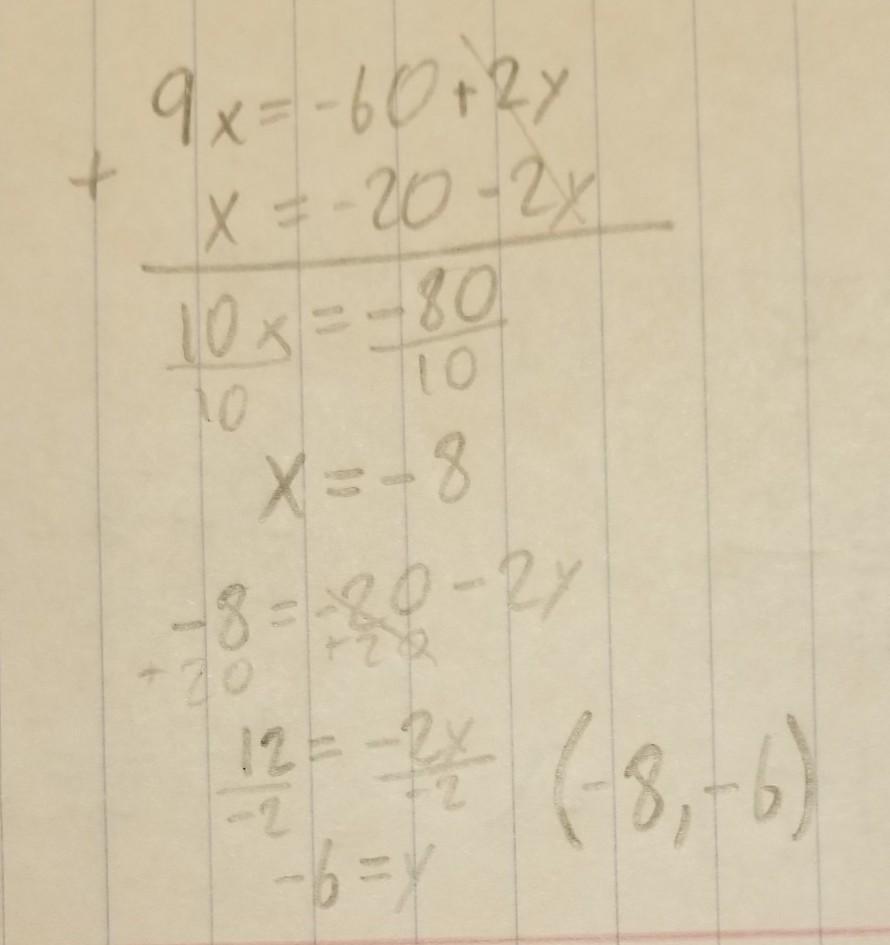 9x = -60 + 2y
+ x = -20 - 2y
10x = -80
10 10
x = -8
-8 = -20 - 2y
+20 +20
12 = -2y
-2 -2
-6 = y
(-8, -6)